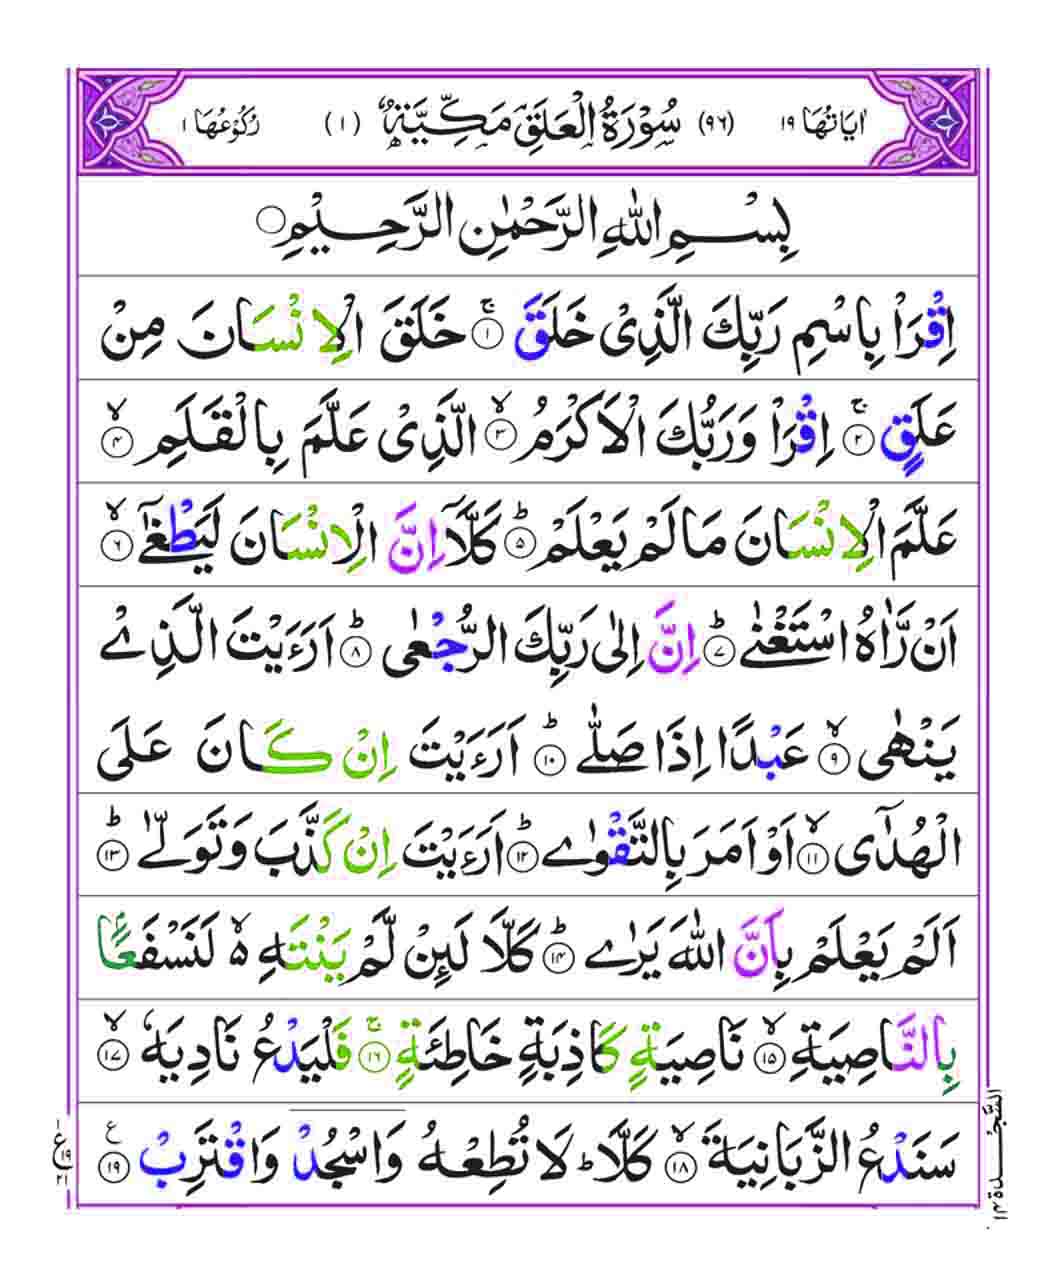 اٰيَاتُهَا ١٩ (٩٦) سُوْرَةُ الْعَلَقِ مَكِّيَّةٌ (١) رُكُوْعُهَا ١
بِسْمِ اللّٰهِ الرَّحْمٰنِ الرَّحِيْمِ ○
اِقْرَاْ بِاسْمِ رَبِّكَ الَّذِىْ خَلَقَ ۚ‏﴿۱﴾ خَلَقَ الْاِنْسَانَ مِنْ
عَلَقٍ ۚ‏﴿۲﴾ اِقْرَاْ وَرَبُّكَ الْاَكْرَمُ ۙ‏﴿۳﴾ الَّذِىْ عَلَّمَ بِالْقَلَمِ ۙ‏﴿۴﴾
عَلَّمَ الْاِنْسَانَ مَا لَمْ يَعْلَمْ ؕ‏﴿۵﴾ كَلَّاۤ اِنَّ الْاِنْسَانَ لَيَطْغٰٓى ۙ‏﴿۶﴾
اَنْ رَّاٰهُ اسْتَغْنٰى ؕ‏﴿۷﴾ اِنَّ اِلٰى رَبِّكَ الرُّجْعٰى ؕ‏﴿۸﴾ اَرَءَيْتَ الَّذِىْ
يَنْهٰى ۙ‏﴿۹﴾ عَبْدًا اِذَا صَلّٰى ؕ‏﴿۱۰﴾ اَرَءَيْتَ اِنْ كَانَ عَلَى
الْهُدٰٓى ۙ‏﴿۱۱﴾ اَوْ اَمَرَ بِالتَّقْوٰى ؕ‏﴿۱۲﴾ اَرَءَيْتَ اِنْ كَذَّبَ وَتَوَلّٰى ؕ‏﴿۱۳﴾
اَلَمْ يَعْلَمْ بِاَنَّ اللّٰهَ يَرٰى ؕ‏﴿۱۴﴾ كَلَّا لَئِنْ لَّمْ يَنْتَهِ ۙ۬ لَنَسْفَعًۢا
بِالنَّاصِيَةِ ۙ‏﴿۱۵﴾ نَاصِيَةٍ كَاذِبَةٍ خَاطِئَةٍ ۚ‏﴿۱۶﴾ فَلْيَدْعُ نَادِيَهٗ ۙ‏﴿۱۷﴾
سَنَدْعُ الزَّبَانِيَةَ ۙ‏﴿۱۸﴾ كَلَّا ؕ لَا تُطِعْهُ وَاسْجُدْ وَاقْتَرِبْ ﴿۱۹﴾ ع
السَّجْدَة ١٤
١
ع ١٩
٢١